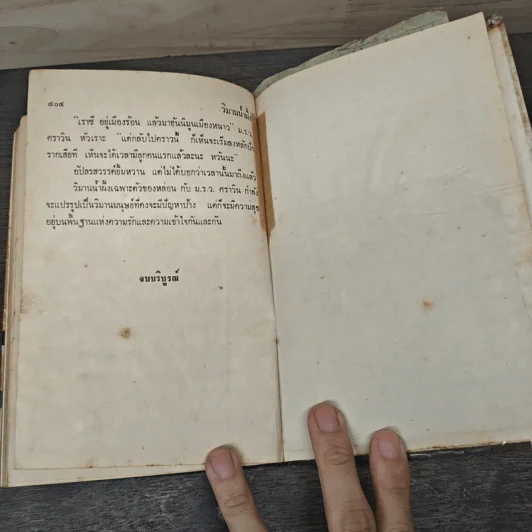 ๔๐๔
วิมานน้ำผึ้ง
"เราซี อยู่เมืองร้อน แล้วมาฮันนีมูนเมืองหนาว" ม.ร.ว.
คราวิน หัวเราะ "แต่กลับไปคราวนี้ ก็เห็นจะเริ่มลงหลักปัก
รากเสียที เห็นจะได้เวลามีลูกคนแรกแล้วละนะ หวันนะ"
อัปสรสวรรค์ยิ้มหวาน แต่ไม่ได้บอกว่าเวลานั้นมาถึงแล้ว
วิมานน้ำผึ้งเฉพาะตัวของหล่อน กับ ม.ร.ว. คราวิน กำลัง
จะแปรรูปเป็นวิมานมนุษย์ที่คงจะมีปัญหาบ้าง แต่ก็จะมีความสุข
อยู่บนพื้นฐานแห่งความรักและความเข้าใจกันและกัน
จบบริบูรณ์